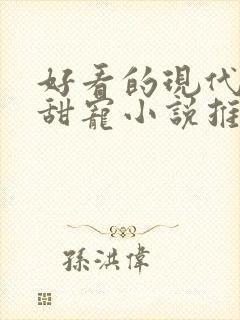 好看的現代
甜寵小說推
孫洪偉